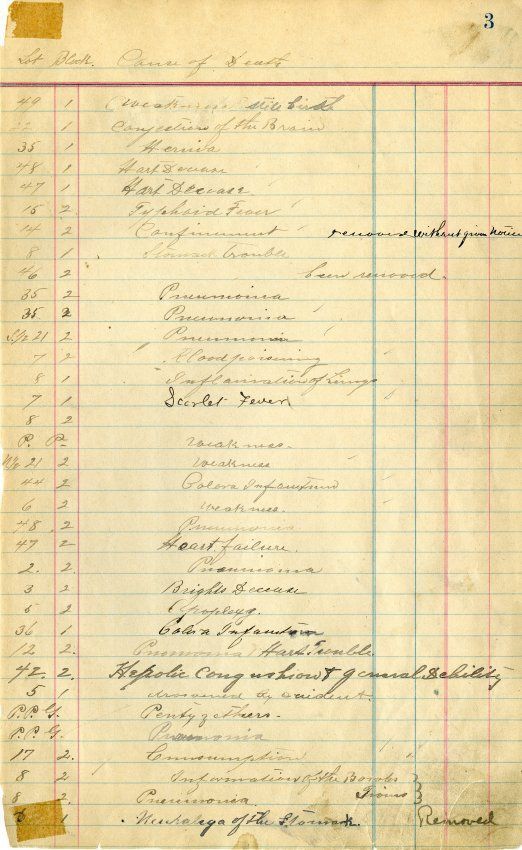 3
Lot Block. Cause of Death
49 1 Weakness still birth
22 1 Conjection of the Brain
35 1 Hernia
48 1 Hart Decease
47 1 Hart Decease
15 2 Typhoid Fever
14 2 Confinement removed without given notice
8 1 Stomack trouble
46 2 been removed.
35 2 Pneumonia
35 2 Pneumonia
S 1/2 21 2 Pneumonia
7 2 Blood poisining
8 1 Inflamation of Lungs
7 1 Scarlet Fever
8 2
P. P. Weakness.
N 1/2 21 2 Weakness
44 2 Colora Infantum
6 2 Weakness.
48 2 Pneumonia
47 2 Heart failure.
2. 2. Pneumonia
3 2 Brights Decease
5 2 Apoplexy.
36 1 Colora Infantum
12 2. Pneumonia Hart Trouble
42. 2. Hepolic Congushion & general Debility
5 1 drowned by accident.
P.P. G.
P.P. G. Pneumonia
17 2. Consumption
8 2 Information of the Bowels
8 2. Pneumonia Twins
1 Neuralega of the Stomack. Removed